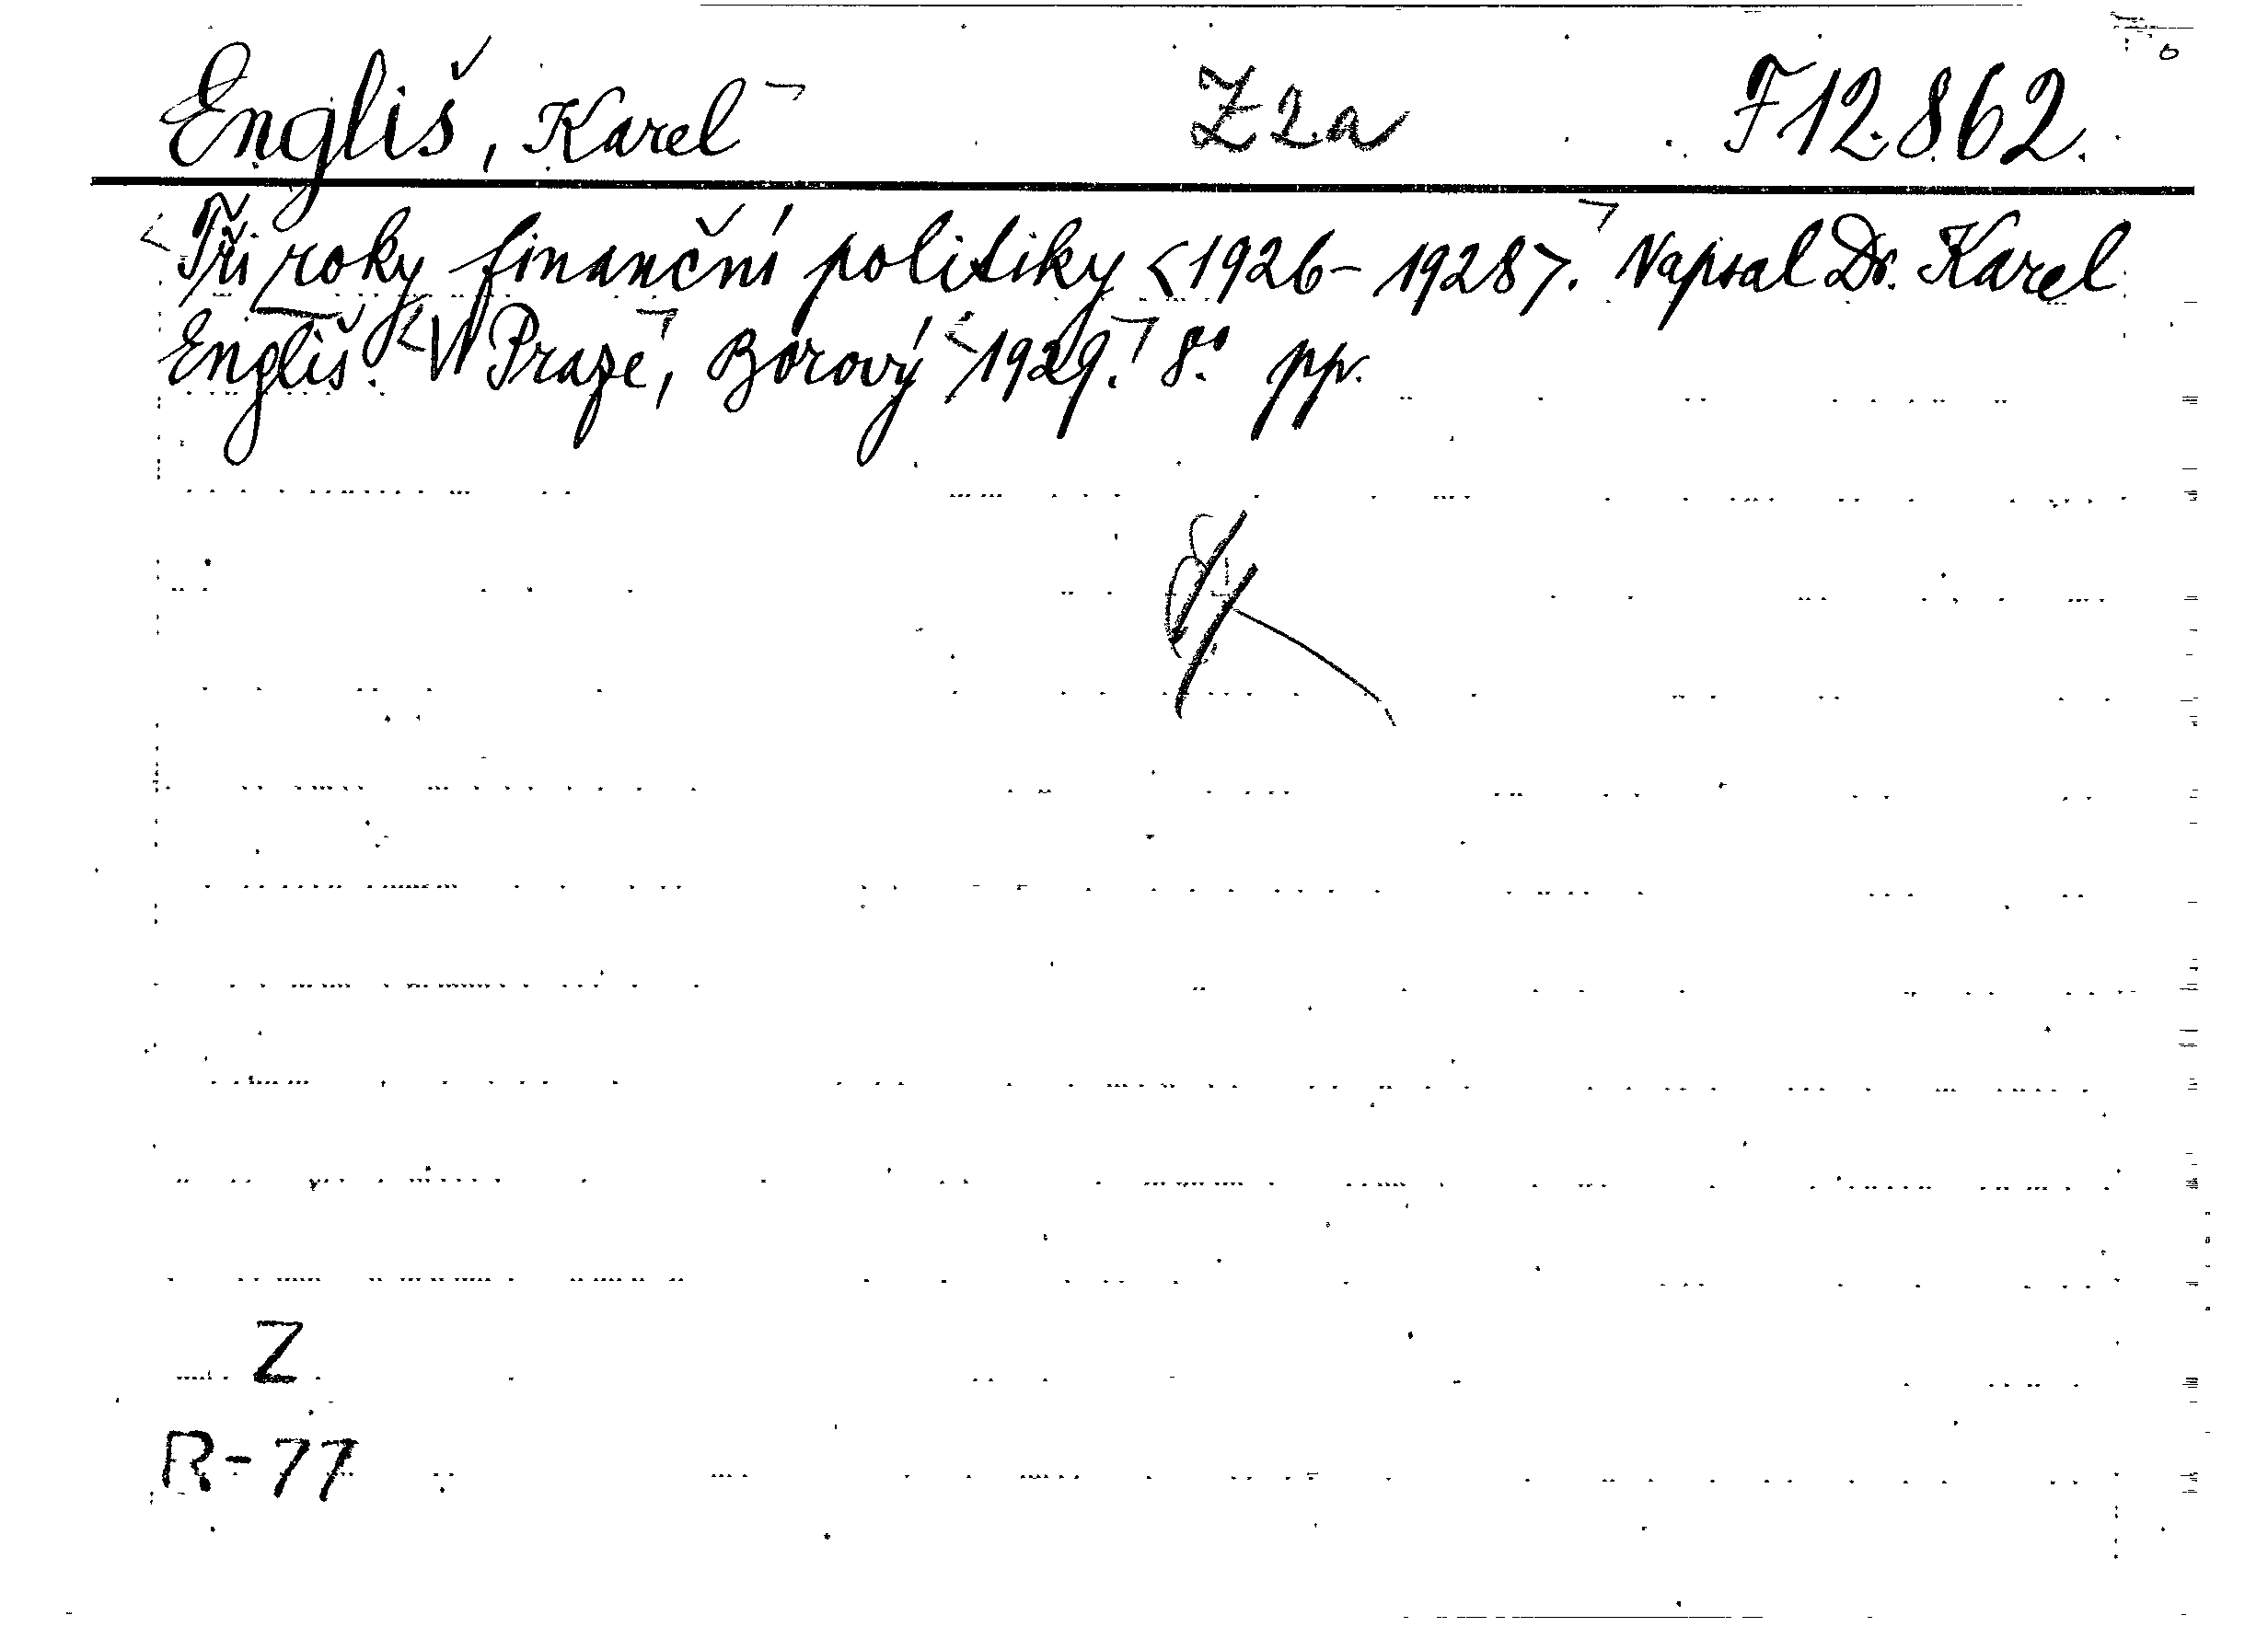 Engliš, Karel Z2a F12.862.
Tři roky finanční politiky <1926-1928>. Napsal Dr. Karel
Engliš. V Praze, Borový 1929. 8° pp.
Z
R-77